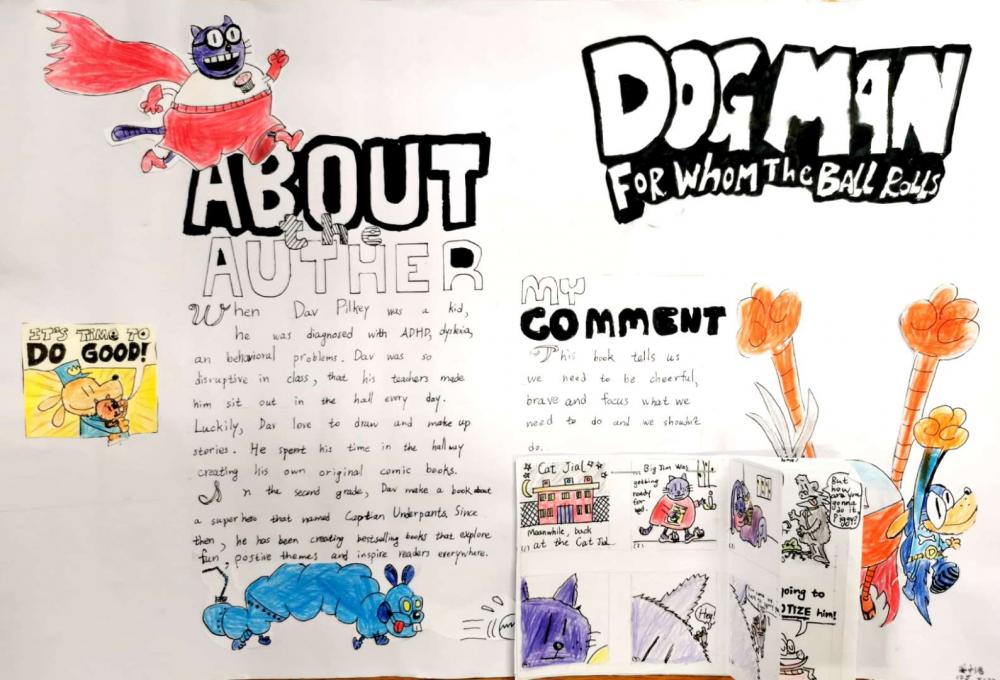 DOG MAN
FOR WHOM The BALL ROLLS
ABOUT
the
AUTHER
When Dav Pilkey was a kid,
he was diagnosed with ADHD, dyslexia,
an behavioral problems. Dav was so
disruptive in class, that his teachers made
him sit out in the hall every day.
Luckily, Dav love to draw and make up
stories. He spent his time in the hallway
creating his own original comic books.
In the second grade, Dav make a book about
a superhero that named Captian Underpants. Since
then, he has been creating bestselling books that explore
fun, postive themes and inspire readers everywhere.
IT'S TIME TO
DO GOOD!
MY
COMMENT
This book tells us
we need to be cheerful,
brave and focus what we
need to do and we shouldn't
do.
Cat Jial
Meanwhile, back
at the Cat Jial
(1)
Big Jim was
getting
ready
for
bed.
(2)
Hey!
But
how
are you
gonna
do it,
Piggy?
going to
him!